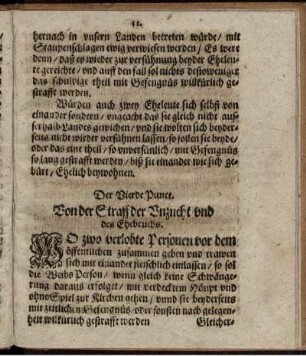 11.
hernach in vnsern Landen betreten würde/ mit
Staupenschlagen ewig verwiesen werden/ Es were
denn/ daß es wieder zur versühnung beyder Eheleu-
te gereichte/ vnd auff den fall sol nichts destoweniger
das schuldige theil mit Gefengnüs wilkürlich ge-
strafft werden.
Würden auch zwey Eheleute sich selbst von
einander sondern/ vngeacht das sie gleich nicht aus-
serhalb Landes gewichen/ vnd sie wolten sich beyder-
seits nicht wieder versühnen lassen/ so sollen sie beyde/
oder das eine theil/ so vnversünlich/ mit Gefengnüs
so lang gestrafft werden/ biß sie einander wie sich ge-
bürt/ Ehelich beywohnen.
Der Vierde Punct.
Von der Straff der Vnzucht vnd
des Ehebruchs.
WO zwo verlobte Personen vor dem
öffentlichen zusammen geben vnd trawen
sich mit einander fleischlich einlassen/ so sol
die Weibs Person/ wenn gleich keine Schwänge-
rung daraus erfolget/ mit verdecktem Häupt vnd
ohne Spiel zur Kirchen gehen/ vnnd sie beyderseits
mit zeitlichen Gefengnüs/ oder sonsten nach gelegen-
heit wilkürlich gestrafft werden
Gleicher-